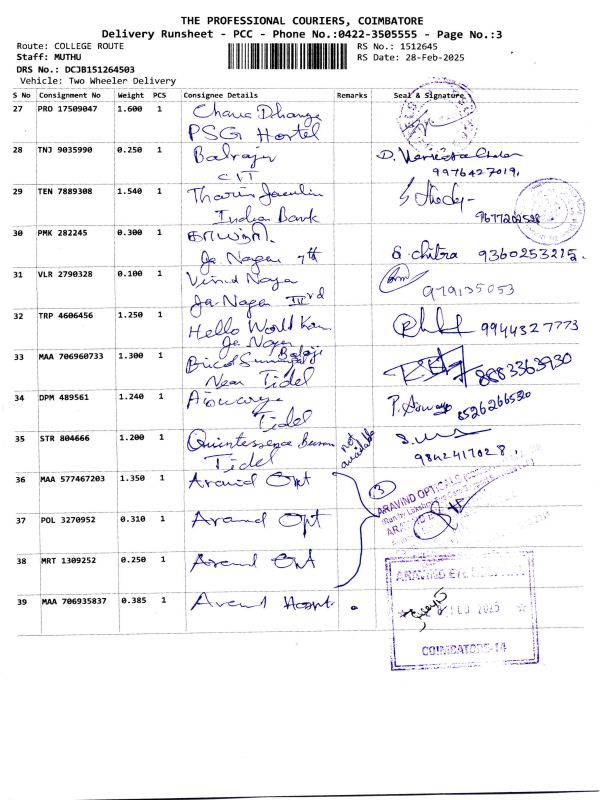 THE PROFESSIONAL COURIERS, COIMBATORE
Delivery Runsheet - PCC - Phone No.:0422-3505555 - Page No.:3
Route: COLLEGE ROUTE
RS No.: 1512645
Staff: MUTHU
RS Date: 28-Feb-2025
DRS No.: DCJB151264503
Vehicle: Two Wheeler Delivery
S No Consignment No Weight PCS Consignee Details Remarks Seal & Signature
27 PRO 17509047 1.600 1
PSG Hostel
28 TNJ 9035990 0.250 1 Balraju
CIT
9976427019,
29 TEN 7889308 1.540 1
Indian Bank
9677202528
30 PMK 282245 0.300 1
Ja Nagar 7th
G. chitra 9360253215.
31 VLR 2790328 0.100 1 Vinod Naga
Ja Nagar IIIrd
979135053
32 TRP 4606456 1.250 1
Hello World
Ja Nagar
9944327773
33 MAA 706960733 1.300 1
Balaji
Near Tidel
8883363930
34 DPM 489561 1.240 1 Aiswarya
Tidel
P. Aswarya
8526266530
35 STR 804666 1.200 1 Quintessence
Tidel
not available
9842417028.
36 MAA 577467203 1.350 1 Aravind Opt
3
ARAVIND OPTICALS
37 POL 3270952 0.310 1 Aravind Opt
38 MRT 1309252 0.250 1 Aravind Opt
39 MAA 706935837 0.385 1 Aravind Hospt
ARAVIND EYE
FEB 2025
COIMBATORE-14